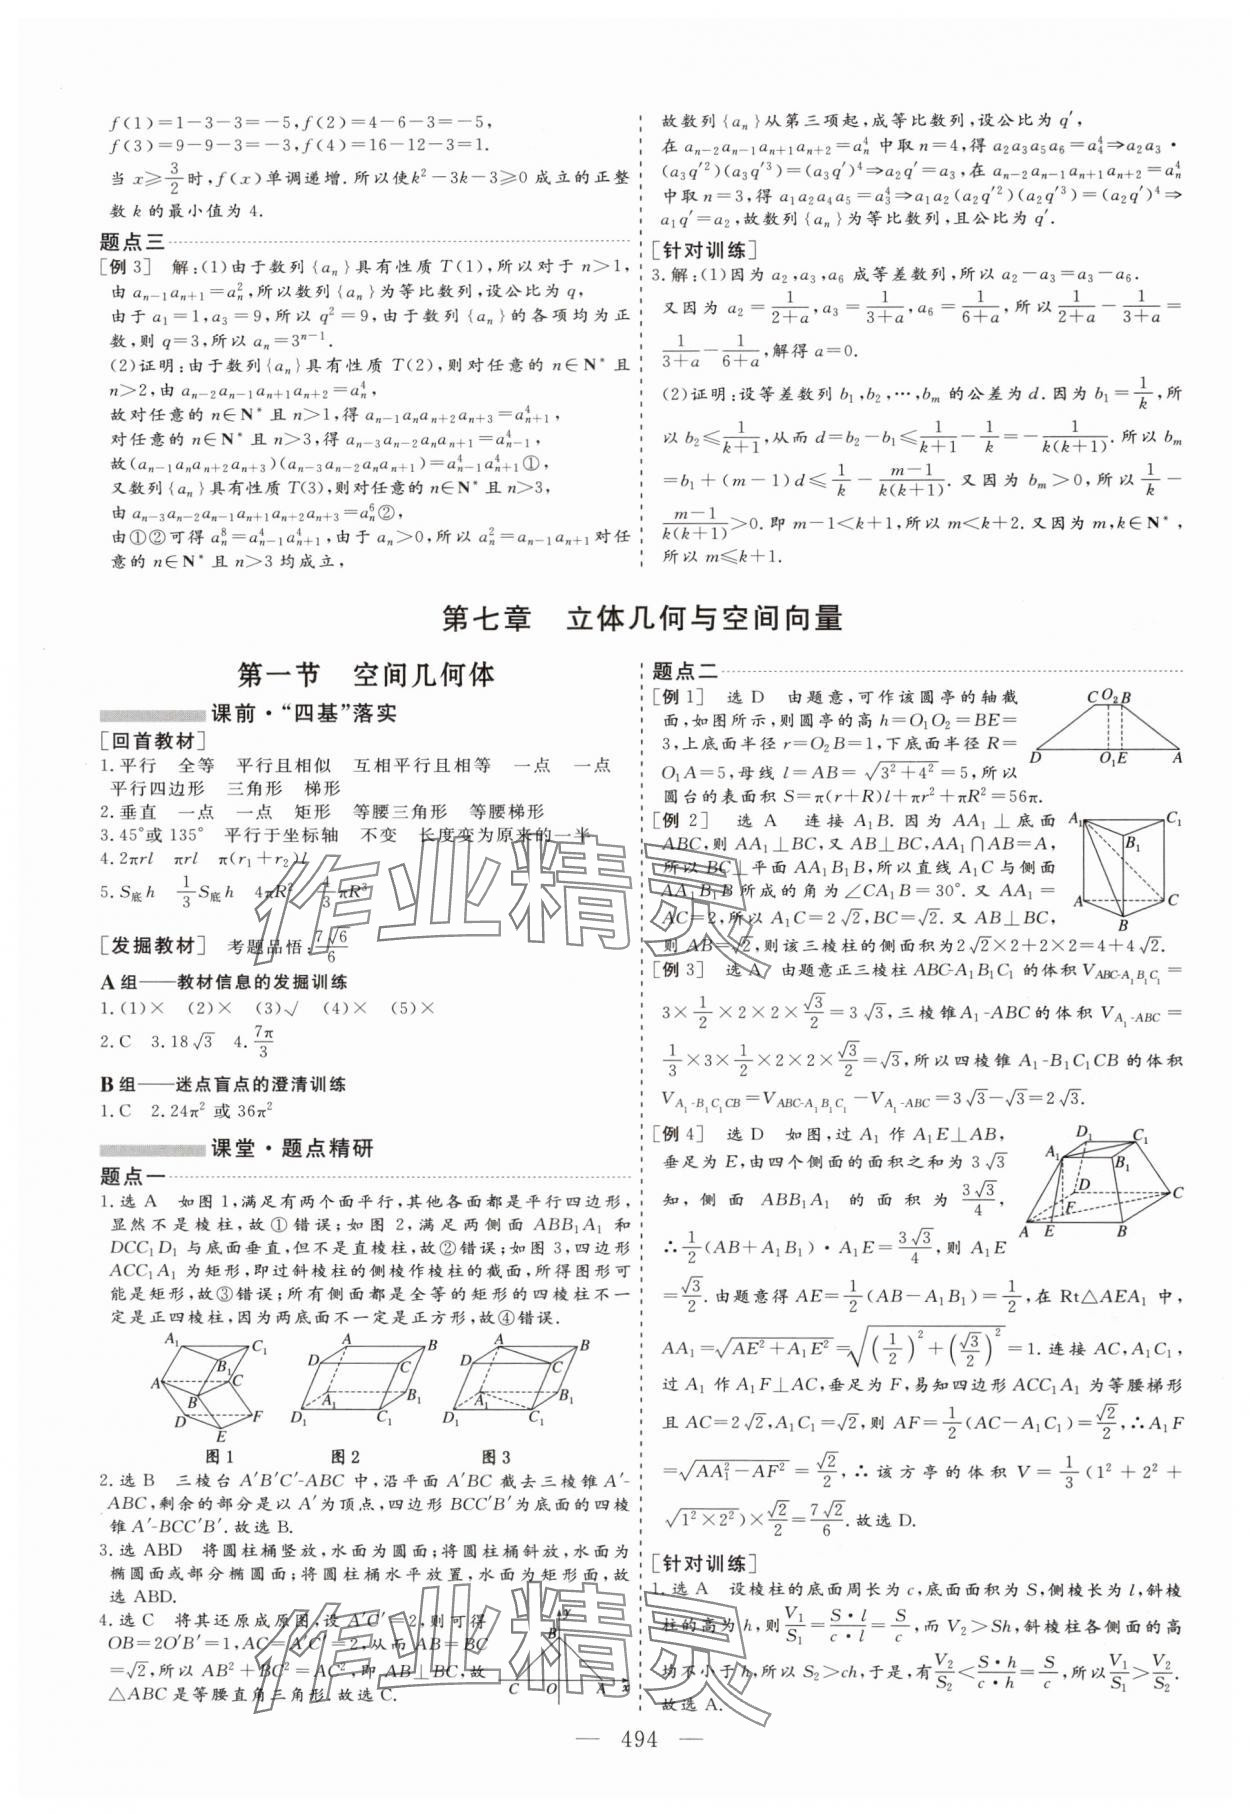 f(1)=1-3-3=-5,f(2)=4-6-3=-5,
f(3)=9-9-3=-3,f(4)=16-12-3=1.
当 x≥3/2时,f(x)单调递增.所以使k²-3k-3≥0 成立的正整
数 k 的最小值为 4.
题点三
[例 3] 解:(1)由于数列{aₙ}具有性质 T(1),所以对于 n>1,
由 aₙ₋₁aₙ₊₁=aₙ²,所以数列{aₙ}为等比数列,设公比为 q,
由于 a₁=1,a₃=9,所以 q²=9,由于数列{aₙ}的各项均为正
数,则 q=3,所以 aₙ=3ⁿ⁻¹.
(2)证明:由于数列{aₙ}具有性质 T(2),则对任意的 n∈N* 且
n>2,由 aₙ₋₂aₙ₋₁aₙ₊₁aₙ₊₂=aₙ⁴,
故对任意的 n∈N* 且 n>1,得 aₙ₋₁aₙaₙ₊₂aₙ₊₃=aₙ₊₁⁴,
对任意的 n∈N* 且 n>3,得 aₙ₋₃aₙ₋₂aₙaₙ₊₁=aₙ₋₁⁴,
故(aₙ₋₁aₙaₙ₊₂aₙ₊₃)(aₙ₋₃aₙ₋₂aₙaₙ₊₁)=aₙ₋₁⁴aₙ₊₁⁴①,
又数列{aₙ}具有性质 T(3),则对任意的 n∈N* 且 n>3,
由 aₙ₋₃aₙ₋₂aₙ₋₁aₙ₊₁aₙ₊₂aₙ₊₃=aₙ⁶②,
由①②可得 aₙ⁸=aₙ₋₁⁴aₙ₊₁⁴,由于 aₙ>0,所以 aₙ²=aₙ₋₁aₙ₊₁对任
意的 n∈N* 且 n>3 均成立,
故数列{aₙ}从第三项起,成等比数列,设公比为 q′,
在 aₙ₋₂aₙ₋₁aₙ₊₁aₙ₊₂=aₙ⁴ 中取 n=4,得 a₂a₃a₅a₆=a₄⁴⇒a₂a₃·
(a₃q′²)(a₃q′³)=(a₃q′)⁴⇒a₂q′=a₃,在 aₙ₋₂aₙ₋₁aₙ₊₁aₙ₊₂=aₙ⁴
中取 n=3,得 a₁a₂a₄a₅=a₃⁴⇒a₁a₂(a₂q′²)(a₂q′³)=(a₂q′)⁴⇒
a₁q′=a₂,故数列{aₙ}为等比数列,且公比为 q′.
[针对训练]
3.解:(1)因为 a₂,a₃,a₆ 成等差数列,所以 a₂-a₃=a₃-a₆.
又因为 a₂=1/(2+a),a₃=1/(3+a),a₆=1/(6+a),所以1/(2+a)-1/(3+a)=
1/(3+a)-1/(6+a),解得 a=0.
(2)证明:设等差数列 b₁,b₂,…,bₘ 的公差为 d.因为 b₁=1/k,所
以 b₂≤1/(k+1),从而 d=b₂-b₁≤1/(k+1)-1/k=-1/(k(k+1)).所以 bₘ
=b₁+(m-1)d≤1/k-(m-1)/(k(k+1)).又因为 bₘ>0,所以1/k-
(m-1)/(k(k+1))>0.即 m-1<k+1,所以 m<k+2.又因为 m,k∈N*,
所以 m≤k+1.
第七章 立体几何与空间向量
第一节 空间几何体
课前·“四基”落实
[回首教材]
1.平行 全等 平行且相似 互相平行且相等 一点 一点
平行四边形 三角形 梯形
2.垂直 一点 一点 矩形 等腰三角形 等腰梯形
3.45°或 135° 平行于坐标轴 不变 长度变为原来的一半
4.2πrl πrl π(r₁+r₂)l
5.S底h 1/3S底h 4πR² 4/3πR³
[发掘教材] 考题品悟:7√6/6
A 组——教材信息的发掘训练
1.(1)× (2)× (3)√ (4)× (5)×
2.C 3.18√3 4.7π/3
B 组——迷点盲点的澄清训练
1.C 2.24π² 或 36π²
课堂·题点精研
题点一
1.选 A 如图 1,满足有两个面平行,其他各面都是平行四边形,
显然不是棱柱,故①错误;如图 2,满足两侧面 ABB₁A₁ 和
DCC₁D₁ 与底面垂直,但不是直棱柱,故②错误;如图 3,四边形
ACC₁A₁ 为矩形,即过斜棱柱的侧棱作棱柱的截面,所得图形可
能是矩形,故③错误;所有侧面都是全等的矩形的四棱柱不一
定是正四棱柱,因为两底面不一定是正方形,故④错误.
A₁ C₁ B₁ A C B D F E
A B D C A₁ B₁ D₁ C₁
A B D C A₁ B₁ D₁ C₁
图 1 图 2 图 3
2.选 B 三棱台 A′B′C′-ABC 中,沿平面 A′BC 截去三棱锥 A′-
ABC,剩余的部分是以 A′为顶点,四边形 BCC′B′为底面的四棱
锥 A′-BCC′B′.故选 B.
3.选 ABD 将圆柱桶竖放,水面为圆面;将圆柱桶斜放,水面为
椭圆面或部分椭圆面;将圆柱桶水平放置,水面为矩形面,故
选 ABD.
4.选 C 将其还原成原图,设 A′C′=2,则可得
OB=2O′B′=1,AC=A′C′=2,从而 AB=BC
=√2,所以 AB²+BC²=AC²,即 AB⊥BC,故
△ABC 是等腰直角三角形.故选 C.
y B C O A x
题点二
[例 1] 选 D 由题意,可作该圆亭的轴截
面,如图所示,则圆亭的高 h=O₁O₂=BE=
3,上底面半径 r=O₂B=1,下底面半径 R=
O₁A=5,母线 l=AB=√(3²+4²)=5,所以
圆台的表面积 S=π(r+R)l+πr²+πR²=56π.
C O₂ B D O₁ E A
[例 2] 选 A 连接 A₁B.因为 AA₁⊥底面
ABC,则 AA₁⊥BC,又 AB⊥BC,AA₁∩AB=A,
所以 BC⊥平面 AA₁B₁B,所以直线 A₁C 与侧面
AA₁B₁B 所成的角为∠CA₁B=30°.又 AA₁=
AC=2,所以 A₁C=2√2,BC=√2.又 AB⊥BC,
则 AB=√2,则该三棱柱的侧面积为2√2×2+2×2=4+4√2.
A₁ C₁ B₁ A C B
[例 3] 选 A 由题意正三棱柱 ABC-A₁B₁C₁ 的体积 V_ABC-A₁B₁C₁=
3×1/2×2×2×√3/2=3√3,三棱锥A₁-ABC的体积 V_A₁-ABC=
1/3×3×1/2×2×2×√3/2=√3,所以四棱锥 A₁-B₁C₁CB 的体积
V_A₁-B₁C₁CB=V_ABC-A₁B₁C₁-V_A₁-ABC=3√3-√3=2√3.
[例 4] 选 D 如图,过 A₁ 作 A₁E⊥AB,
垂足为 E,由四个侧面的面积之和为 3√3
知,侧面 ABB₁A₁ 的面积为 3√3/4,
∴1/2(AB+A₁B₁)·A₁E=3√3/4,则 A₁E
=√3/2.由题意得 AE=1/2(AB-A₁B₁)=1/2,在 Rt△AEA₁ 中,
AA₁=√(AE²+A₁E²)=√((1/2)²+(√3/2)²)=1.连接 AC,A₁C₁,
过 A₁ 作 A₁F⊥AC,垂足为 F,易知四边形 ACC₁A₁ 为等腰梯形
且 AC=2√2,A₁C₁=√2,则 AF=1/2(AC-A₁C₁)=√2/2,∴A₁F
=√(AA₁²-AF²)=√2/2,∴该方亭的体积 V=1/3(1²+2²+
√(1²×2²))×√2/2=7√2/6.故选 D.
D₁ C₁ A₁ B₁ D C F A E B
[针对训练]
1.选 A 设棱柱的底面周长为 c,底面面积为 S,侧棱长为 l,斜棱
柱的高为 h,则V₁/S₁=S·l/c·l=S/c,而 V₂>Sh,斜棱柱各侧面的高
均不小于 h,所以 S₂>ch,于是,有V₂/S₂<S·h/c·h=S/c,所以V₁/S₁>V₂/S₂.
故选 A.
— 494 —
作业精灵
作业精灵